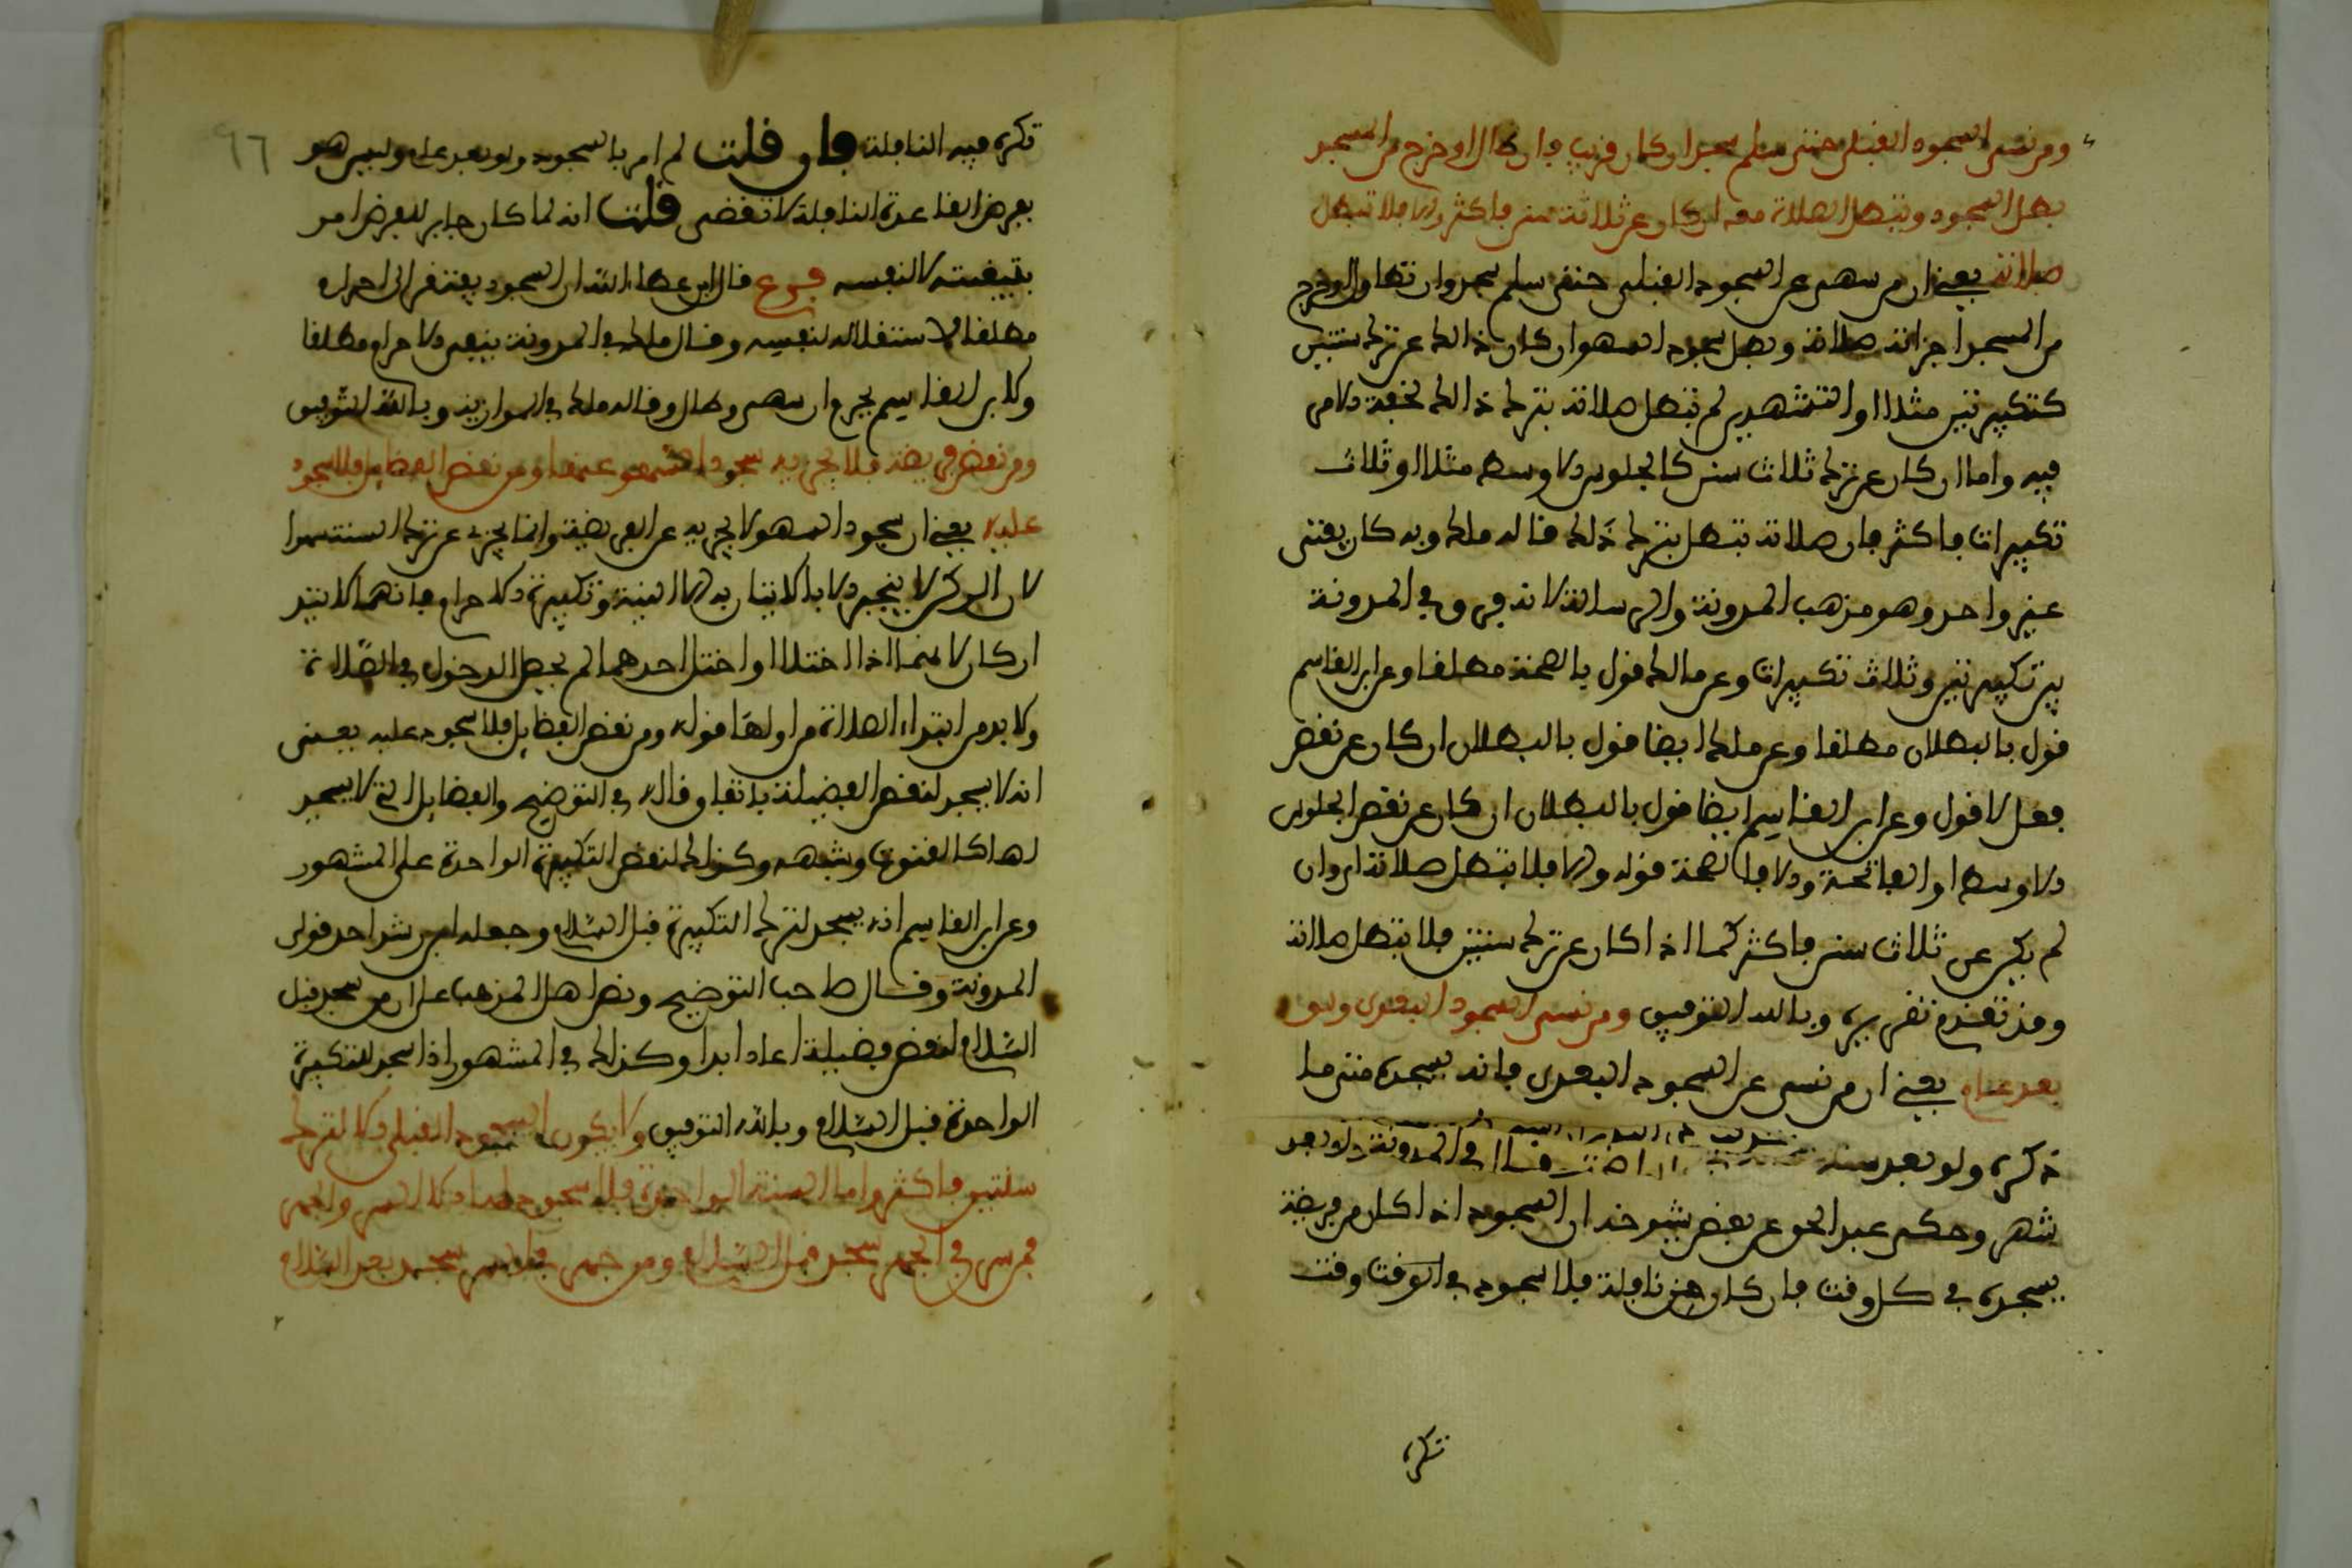 ومن نسي السجود القبلي حتى سلم سجد ان كان قريبا فان طال او خرج من المسجد
بطل السجود وتبطل الصلاة معه ان كان عن ثلاثة سنن فاكثر والا فلا تبطل
صلاته يعني ان من سهى عن السجود القبلي حتى سلم سجد وان تطاول او خرج
من المسجد اجزاته صلاته وبطل سجود السهو ان كان ذالك عن ترك سنتين
كتكبيرتين مثلا او التشهدين لم تبطل صلاته بترك ذالك لخفة الامر
فيه واما ان كان عن ترك ثلاث سنن كالجلوس الاوسط مثلا او ثلاث
تكبيرات فاكثر فان صلاته تبطل بترك ذلك قاله ملك وبه كان يفتي
غير واحد وهو مذهب المدونة والرسالة لانه فرق في المدونة
بين تكبيرتين وثلاث تكبيرات وعن مالك قول بالصحة مطلقا وعن ابن القاسم
قول بالبطلان مطلقا وعن ملك ايضا قول بالبطلان ان كان عن نقص
فعل لا قول وعن ابن القاسم ايضا قول بالبطلان ان كان عن نقص الجلوس
الاوسط او الفاتحة والا فالصحة قوله والا فلا تبطل صلاته اي وان
لم يكن عن ثلاث سنن فاكثر كما اذا كان عن ترك سنتين فلا تبطل صلاته
وقد تقدم تقريره وبالله التوفيق ومن نسي السجود البعدي ولو
بعد عام يعني ان من نسي عن السجود البعدي فانه يسجده متى ما
ذكره ولو بعد سنة قال في المدونة ولو بعد
شهر وحكى عبد الحق عن بعض شيوخه ان السجود اذا كان من فريضة
يسجده في كل وقت فان كان من نافلة فلا سجود في الوقت وقت
تكره
٩٦
تكره فيه النافلة فان قلت لم امر بالسجود ولو بعد عام وليس هو
بفرض والقاعدة النافلة لا تقضى قلت انه لما كان جابر للفرض امر
بتبعيته لا لنفسه فرع قال ابن عطاء الله ان السجود يفتقر الى احرام
مطلقا لاستقلاله لنفسه وقال ملك في المدونة بنفي الاحرام مطلقا
ولابن القاسم يحرم ان سهى وطال وقاله ملك في الموازية وبالله التوفيق
ومن نقص فريضة فلا يجزيه سجود السهو عنها ومن نقص الفضايل فلا سجود
عليه يعني ان سجود السهو لا يجزيه عن الفريضة وانما يجزي عن ترك السنة سهوا
لان الركن لا ينجبر الا بالاتيان به الا النية وتكبيرة الاحرام فانهما لا تتدا
اركان لانهما اذا اختلا او اختل احدهما لم يحصل الدخول في الصلاة
ولا بد من ابتداء الصلاة من اولها قوله ومن نقص الفضايل فلا سجود عليه يعني
انه لا يسجد لنقص الفضيلة باتفاق قاله في التوضيح والفضايل التي لا يسجد
لها كالقنوت وشبهه وكذالك لنقص التكبيرة الواحدة على المشهور
وعن ابن القاسم انه يسجد لترك التكبيرة قبل السلام وجعله ابن رشد احد قولي
المدونة وقال صاحب التوضيح ونص اهل المذهب على ان من سجد قبل
السلام لنقص فضيلة اعاد ابدا وكذالك في المشهور اذا سجد للتكبيرة
الواحدة قبل السلام وبالله التوفيق ولا يكون السجود القبلي الا لترك
سنتين فاكثر واما السنة الواحدة فلا سجود لها الا السر والجهر
فمن سر في الجهر سجد قبل السلام ومن جهر في السر سجد بعد السلام